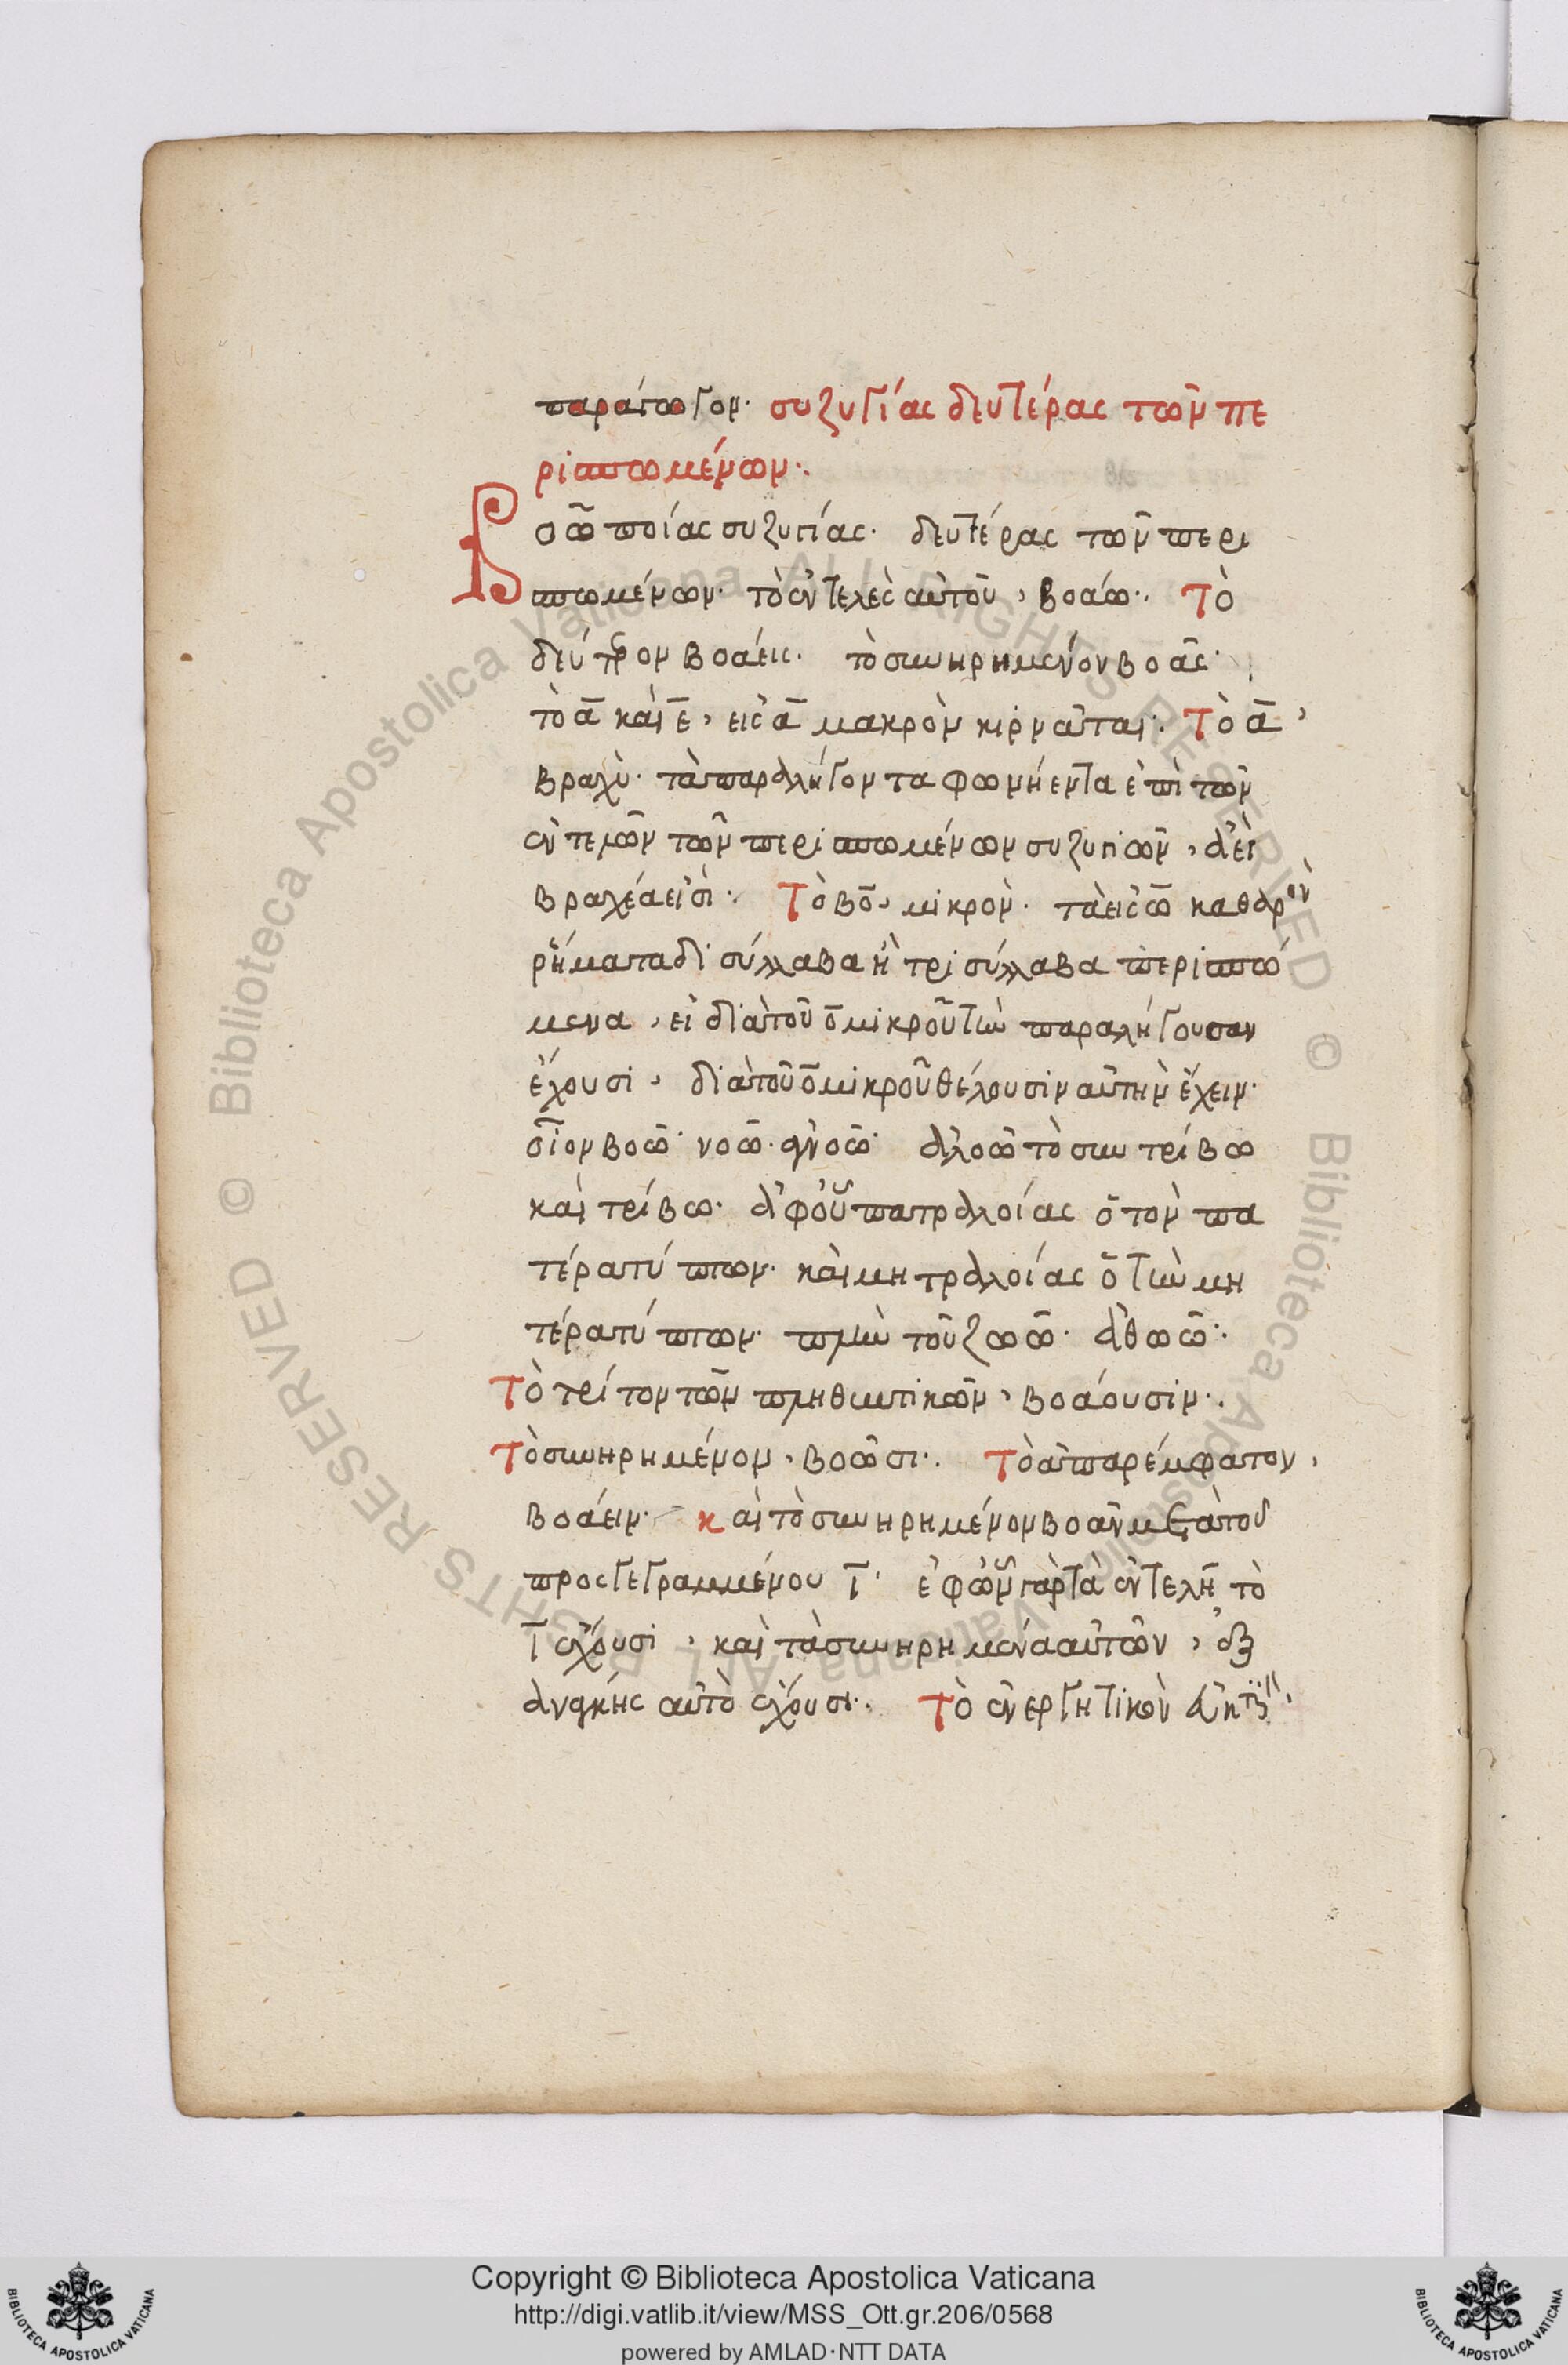 παράγωγον· συζυγίας δευτέρας τῶν πε
ρισπωμένων·
Βοῶ ποίας συζυγίας· δευτέρας τῶν περι
σπωμένων· τὸ ἐντελὲς αὐτοῦ, βοάω·. Τὸ
δεύτερον βοάεις· τὸ συνηρημένον βοᾶς·
τὸ α καὶ ε, εἰς α μακρὸν κιρνᾶται·. Τὸ α,
βραχύ· τὰ παραλήγοντα φωνήεντα ἐπὶ τῶν
ἐντελῶν τῶν περισπωμένων συζυγιῶν, ἀεὶ
βραχέα εἰσὶ·. Τὸ βο, μικρὸν· τὰ εἰς ω καθαρὸν
ῥήματα δισύλλαβα ἢ τρισύλλαβα περισπώ
μενα, εἰ διὰ τοῦ ο μικροῦ τὴν παραλήγουσαν
ἔχουσι, διὰ τοῦ ο μικροῦ θέλουσιν αὐτὴν ἔχειν·
οἷον βοῶ· νοῶ· ἀγνοῶ· ἀλοῶ τὸ συντρίβω
καὶ τρίβω· ἀφ' οὗ πατραλοίας ὁ τὸν πα
τέρα τύπτων· καὶ μητραλοίας ὁ τὴν μη
τέρα τύπτων· πλὴν τοῦ ζωῶ· ἀθωῶ·.
Τὸ τρίτον τῶν πληθυντικῶν, βοάουσιν·.
Τὸ συνηρημένον, βοῶσι·. Τὸ ἀπαρέμφατον,
βοάειν· καὶ τὸ συνηρημένον βοᾶν μετὰ τοῦ
προσγεγραμμένου ι· ἐφ' ὧν γὰρ τὰ ἐντελῆ τὸ
ι ἔχουσι, καὶ τὰ συνηρημένα αὐτῶν, ἐξ
ἀνάγκης αὐτὸ ἔχουσι·. Τὸ ἐνεργητικὸν
Copyright © Biblioteca Apostolica Vaticana
http://digi.vatlib.it/view/MSS_Ott.gr.206/0568
powered by AMLAD·NTT DATA
© Biblioteca Apostolica Vaticana ALL RIGHTS RESERVED
© Biblioteca Apostolica Vaticana ALL RIGHTS RESERVED
BIBLIOTECA APOSTOLICA VATICANA
BIBLIOTECA APOSTOLICA VATICANA